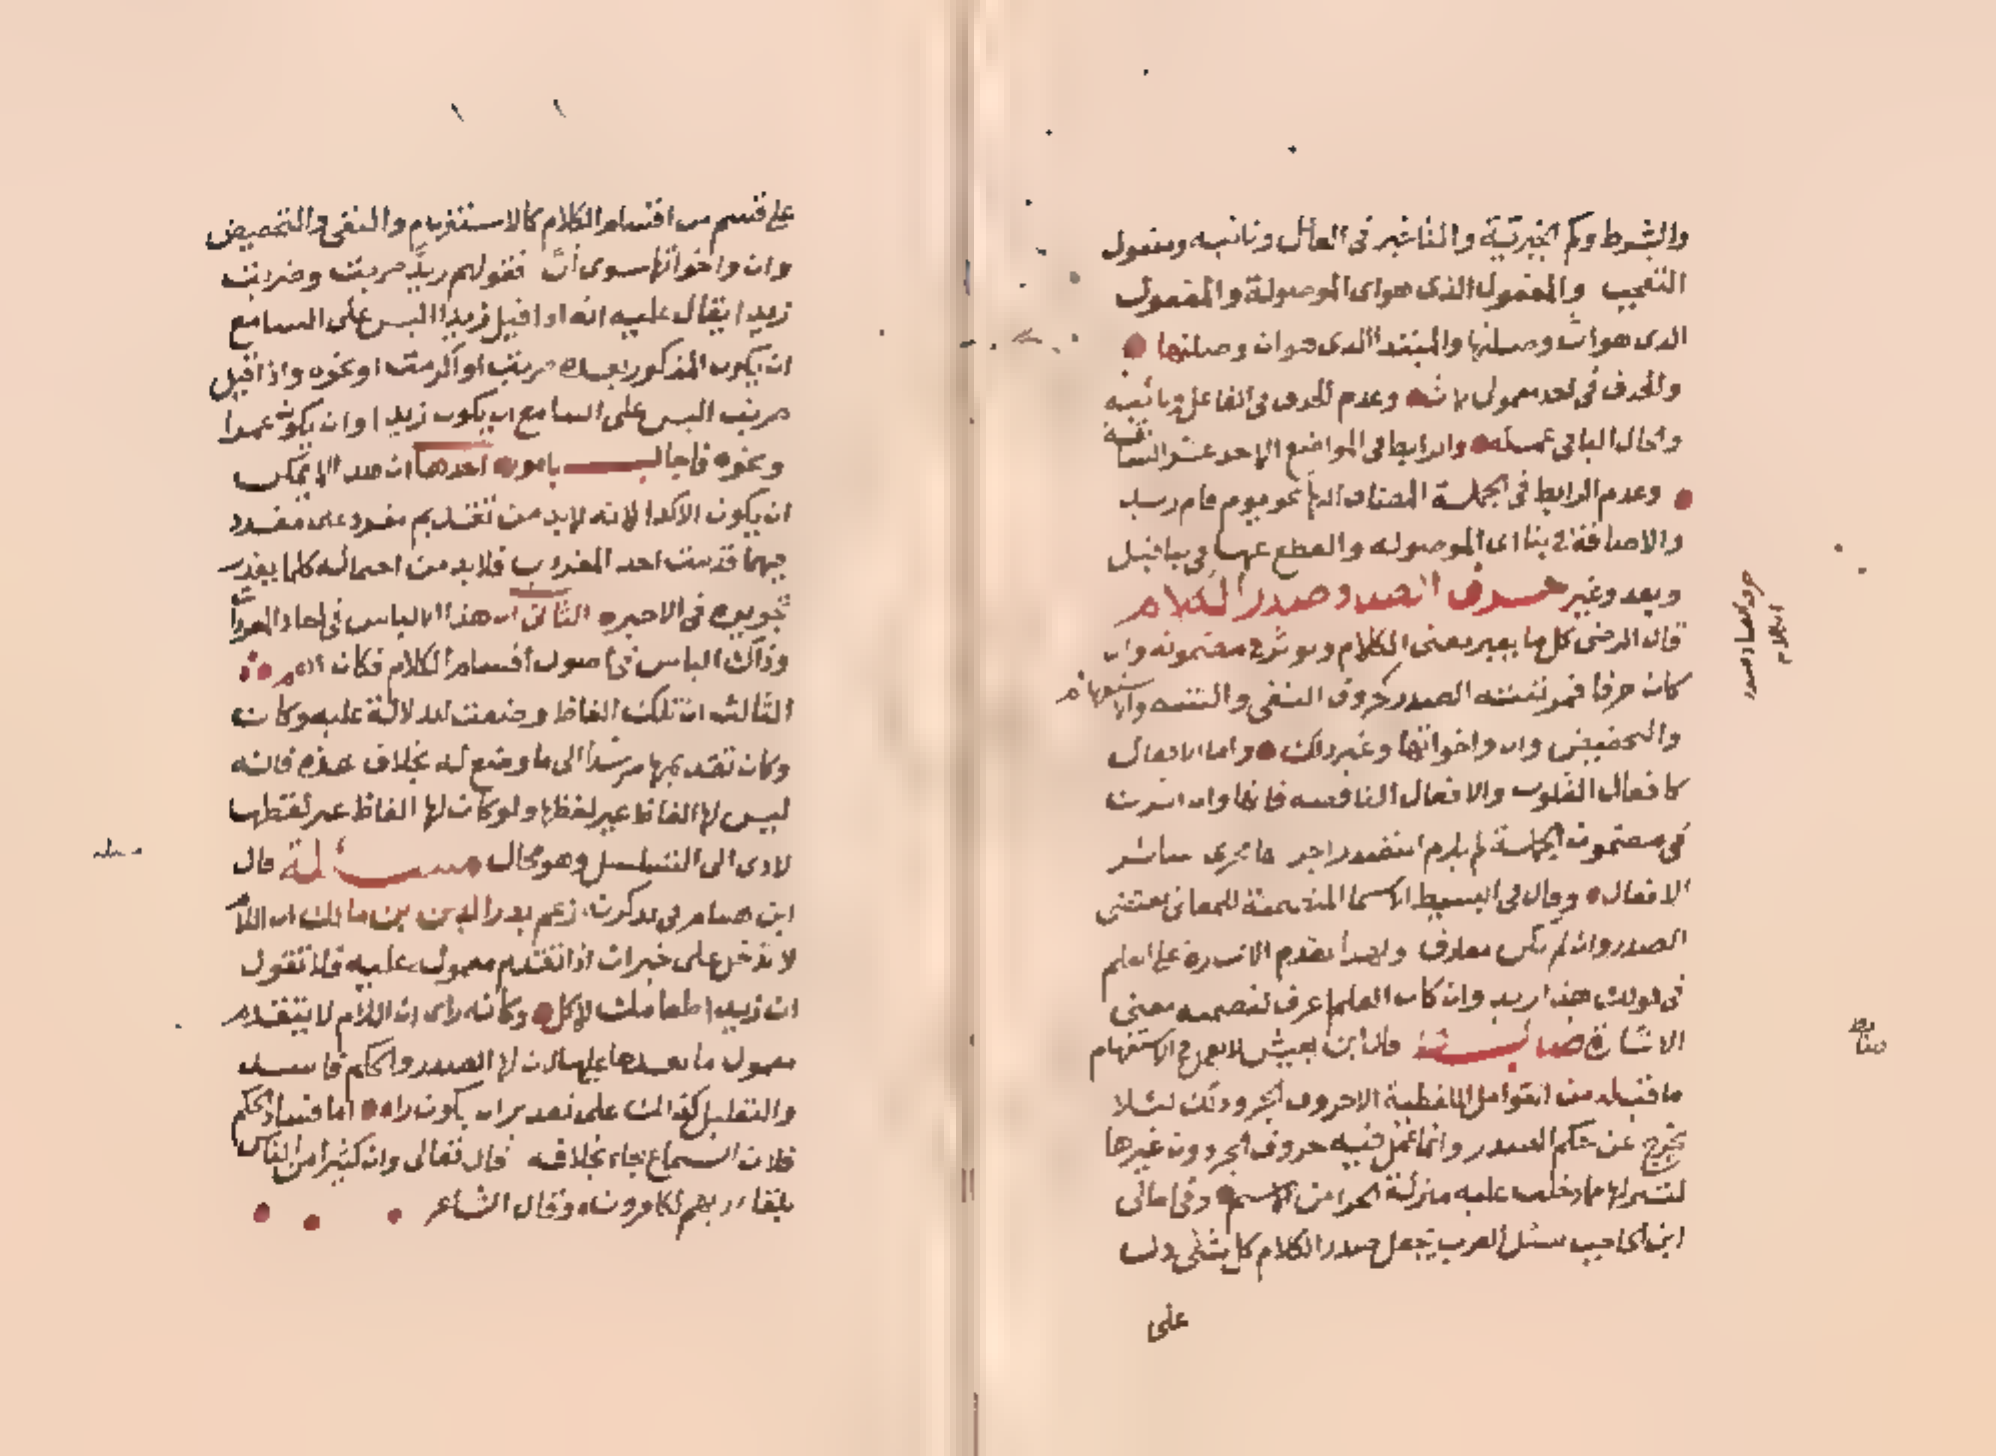 والشرط وكم الخبرية والتاخير في الفاعل ونائبه ومفعول
التعجب والمفعول الذي هو اي الموصولة والمفعول
الذي هو ان وصلتها والمبتدا الذي هو ان وصلتها
والحذف في احد معمولي لات وعدم الحذف في الفاعل ونائبه
وابحال الباقي عمله والرابط في المواضع الاحد عشر السابقة
وعدم الرابط في الجملة المضاف اليها نحو يوم قام زيد
والاضافة في بنا اي الموصوله والقطع عنها في بنا قبل
وبعد وغير حرف الصاد صدر الكلام
قال الرضي كل ما يغير معنى الكلام ويوثر في مضمونه وان
كان حرفا فمرتبته الصدر كحروف النفي والتنبيه والاستفهام
والتحضيض وان واخواتها وغير ذلك واما الافعال
كافعال القلوب والافعال الناقصه فانها وان اثرت
في مضمون الجملة لم يلزم التصدر اجر لها مجرى سائر
الافعال وقال في البسيط الاسما المتضمنة للمعاني تقتضي
الصدر وان لم تكن معارف ولهذا تقدم الاشارة على العلم
في قولك هذا زيد وان كان العلم اعرف لتضمنه معنى
الاشارة ضابط قال ابن يعيش لا يعمل في الاستفهام
ما قبله من العوامل اللفظية الا حروف الجر وذلك لئلا
يخرج عن حكم الصدر وانما عمل فيه حروف الجر دون غيرها
لتنزلها مما دخلت عليه منزلة الجزا من الاسم وفي امالي
ابن الحاجب سئل العرب تجعل صدر الكلام كل شي دل
على
حرف الصاد صدر
الكلام
ضابط
على قسم من اقسام الكلام كالاستفهام والنفي والتحضيض
وان واخواتها سوى ان فقولهم زيدا ضربت وضربت
زيدا يقال عليه انه اذا قيل زيدا البس على السامع
ان يكون المذكور بعده ضربت او اكرمت او نحوه واذا قيل
ضربت البس على السامع ان يكون زيدا وان يكون عمرا
ونحوه فاجاب بامور احدها ان هذا لا يمكن
ان يكون الا كذا لانه لابد من تقديم مفرد على مفرد
فبهما قدمت احد المفردين فلابد من احتماله كلما يقدر
تجويزه في الاخر الثاني ان هذا الالباس في احاد المفردات
وذاك الباس في اصول اقسام الكلام فكان اهم
الثالث ان تلك الفاظ وضعت للدلالة عليه وكانت
وكان تقديمها مرشدا الى ما وضع له بخلاف هذه فانه
ليس لها الفاظ غير لفظها ولو كانت لها الفاظ غير لفظها
لادى الى التسلسل وهو محال مسئلة قال
ابن هشام في تذكرته زعم بدر الدين بن مالك ان اللام
لا تدخل على خبر ان اذا تقدم معموله عليه فلا تقول
ان زيدا طعامك لاكل وكانه راى ان اللام لا يتقدم
معمول ما بعدها عليها لان لها الصدر والحكم فاسد
والتعليل كذلك على تقدير ان يكون راه اما فساد الحكم
فلان السماع جاء بخلافه قال تعالى وان كثيرا من الناس
بلقاء ربهم لكافرون وقال الشاعر
مسئلة